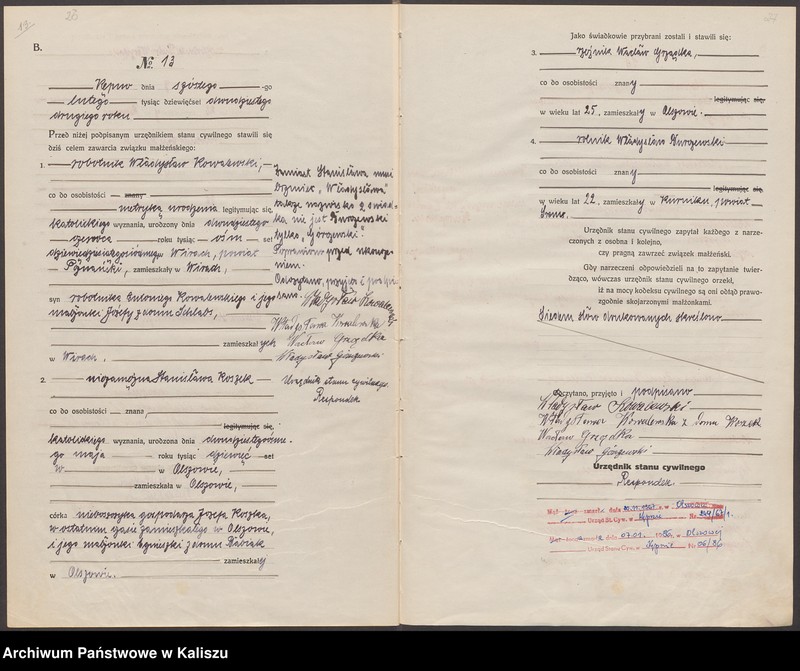 26
B.
№ 13
Kępno dnia szóstego -go
lutego tysiąc dziewięćset dwudziestego
drugiego roku
Przed niżej podpisanym urzędnikiem stanu cywilnego stawili się
dziś celem zawarcia związku małżeńskiego:
1. robotnik Władysław Kowalewski,
co do osobistości znany
metryką urodzenia legitymując się,
katolickiego wyznania, urodzony dnia dwudziestego
czerwca roku tysiąc ośm set
dziewięćdziesiątego w Wirach, powiat
zamieszkały w Wirach,
syn robotnika Antoniego Kowalewskiego i jego
małżonki Józefy z domu
zamieszkałych
w Wirach.
2. niezamężna Stanisława Koszek
co do osobistości znana,
legitymując się,
katolickiego wyznania, urodzona dnia
go maja roku tysiąc dziewięć set
w w Olszowie,
zamieszkała w Olszowie,
córka nieboszczyka gospodarza Józefa Koszka,
w ostatnim czasie zamieszkałego w Olszowie,
i jego małżonki Agnieszki z domu
zamieszkałej
w Olszowie.
Zamiast Stanisława musi
brzmieć "Władysława"
także nazwisko 2 świad-
ka nie jest Gurzewski
tylko "Górzewski".
Poprawiono przed
niem.
Odczytano, przyjęto i podpi-
sano.
Władysław Kowalewski
Władysława Kowalewska
Wacław Grządka
Władysław Górzewski
Urzędnik stanu cywilnego.
Respondek
27
Jako świadkowie przybrani zostali i stawili się:
3. rolnik Wacław Grządka,
co do osobistości znany
legitymując się,
w wieku lat 25, zamieszkały w Olszowie.
4. rolnik Władysław Gurzewski
co do osobistości znany
legitymując się,
w wieku lat 22, zamieszkały w Kurniku, powiat
Śrem.
Urzędnik stanu cywilnego zapytał każdego z narze-
czonych z osobna i kolejno,
czy pragną zawrzeć związek małżeński.
Gdy narzeczeni odpowiedzieli na to zapytanie twier-
dząco, wówczas urzędnik stanu cywilnego orzekł,
iż na mocy kodeksu cywilnego są oni odtąd prawo-
zgodnie skojarzonymi małżonkami.
Siedem słów drukowanych skreślono.
Odczytano, przyjęto i podpisano
Władysław Kowalewski
Władysława Kowalewska z domu Koszek
Wacław Grządka
Władysław Górzewski
Urzędnik stanu cywilnego
Respondek
Archiwum Państwowe w Kaliszu